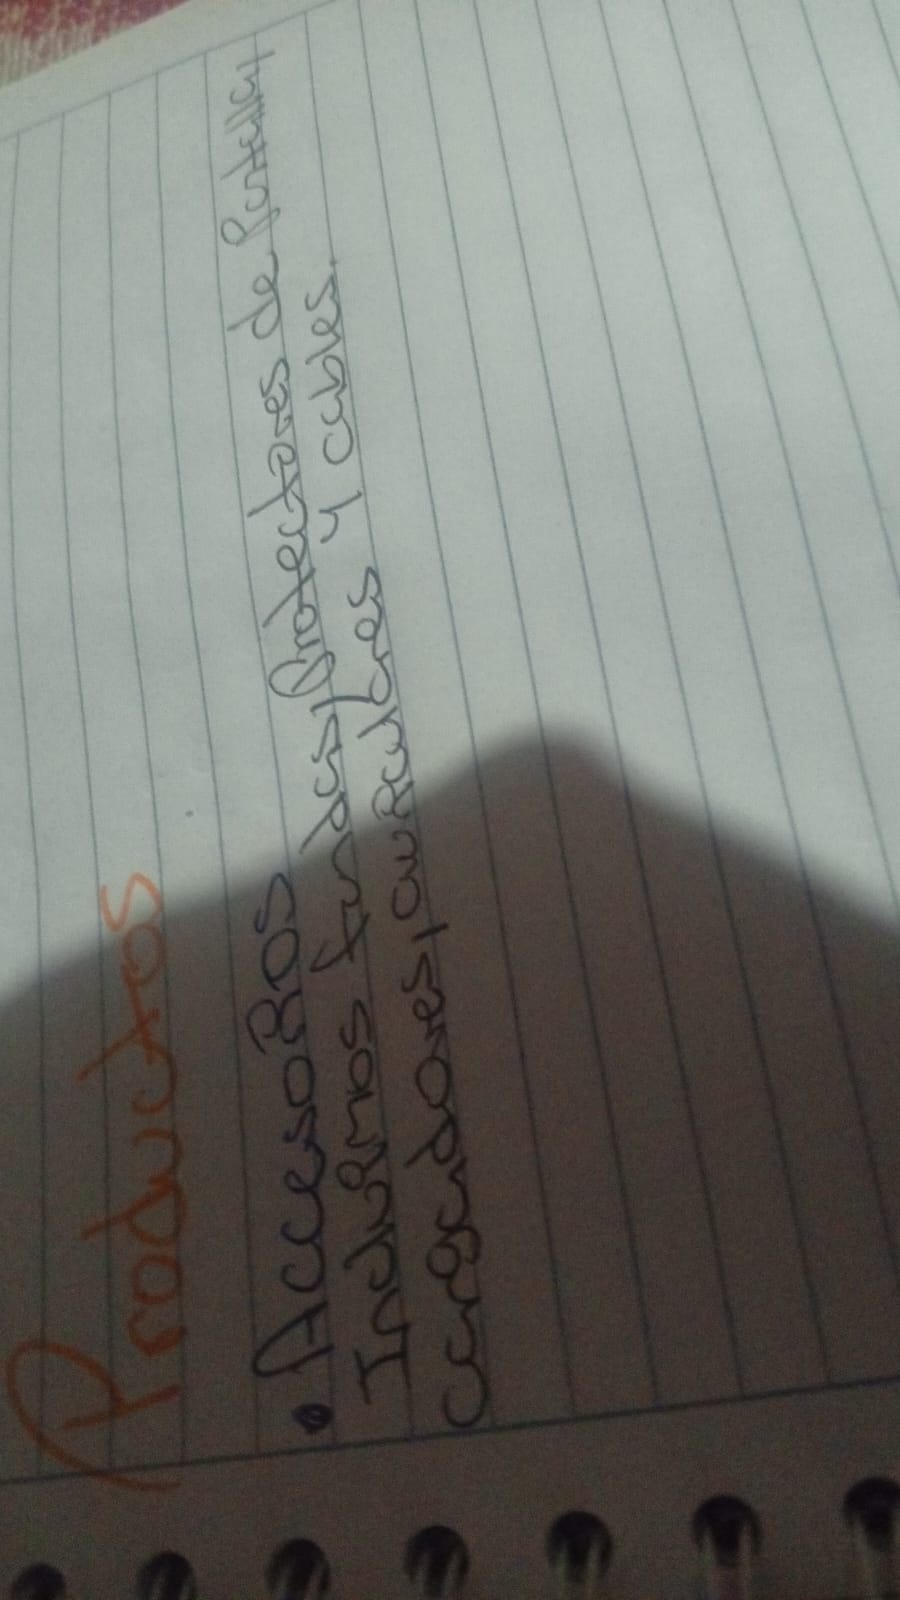 Productos
• Accesorios
Incluimos fundas, Protectores de Pantalla,
cargadores, auriculares y cables.